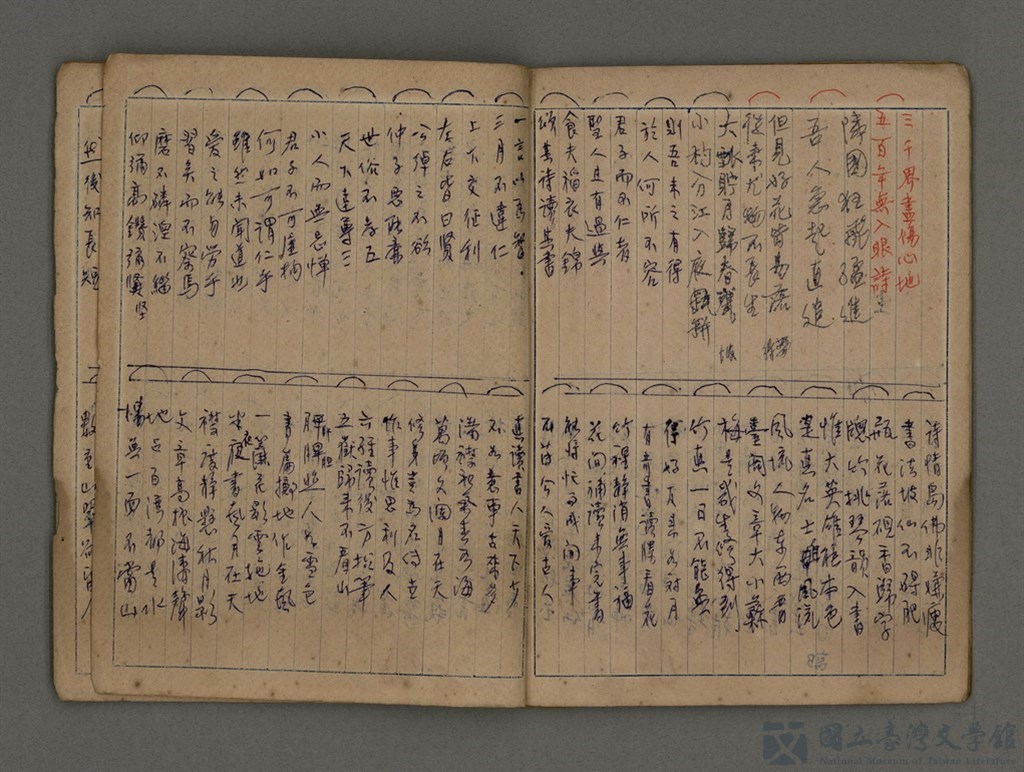 三千界盡傷心地
五百年無入眼詩
隣國狂飛猛進
吾人急起直追
但見好花皆易落
從來尤物不長生
大瓢貯月歸春甕 坡
小杓分江入夜瓶
則吾未之有得
於人何所不容
君子而不仁者
聖人且有過與
食夫稻衣夫錦
頌其詩讀其書
詩情島佛非嫌瘦
書法坡仙不礙肥
瓶花落硯香歸字
牕竹挑琴韻入書
惟大英雄能本色
是真名士自風流
風流人物東西晉
臺閣文章大小蘇
梅是幾生修得到
竹真一日不能無
得好友來如對月
有奇書讀勝看花
竹裡靜消無事福
花間補讀未完書
能將忙事成閒事
不薄今人愛古人
一言以為智
三月不違仁
上下交征利
左右皆曰賢
公綽之不欲
仲子惡能廉
世俗不孝五
天下達尊三
小人而無忌憚
君子不可虛拘
何如可謂仁乎
雖然未聞道也
愛之能勿勞乎
習矣而不察焉
磨不磷涅不緇
仰彌高鑽彌堅
真讀書人天下少
不如意事古來多
滿襟和氣春如海
萬頃文瀾月在天
修身豈為名傳世
作事惟思利及人
六經讀後方拈筆
五嶽歸來不看山
肝膽照人如雪色
青篇擲地作金聲
一簾花影雲拖地
半夜書聲月在天
襟度靜懸秋月影
文章高振海濤聲
地占百灣都是水
樓無一面不當山
然後知長短